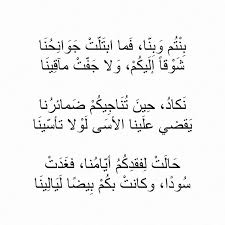 بِنْتُم وَبِنّا، فَما ابتَلّتْ جَوَانِحُنَا
شَوْقاً إلَيكُمْ، وَلا جَفّتْ مآقِينَا
نَكادُ، حِينَ تُنَاجِيكُمْ ضَمائرُنا
يَقضي علَينا الأسَى لَوْلا تأسّينَا
حَالَتْ لِفقدِكُمُ أيّامُنا، فغَدَتْ
سُودًا، وكانتْ بكُمْ بِيضًا لَيَالِينَا